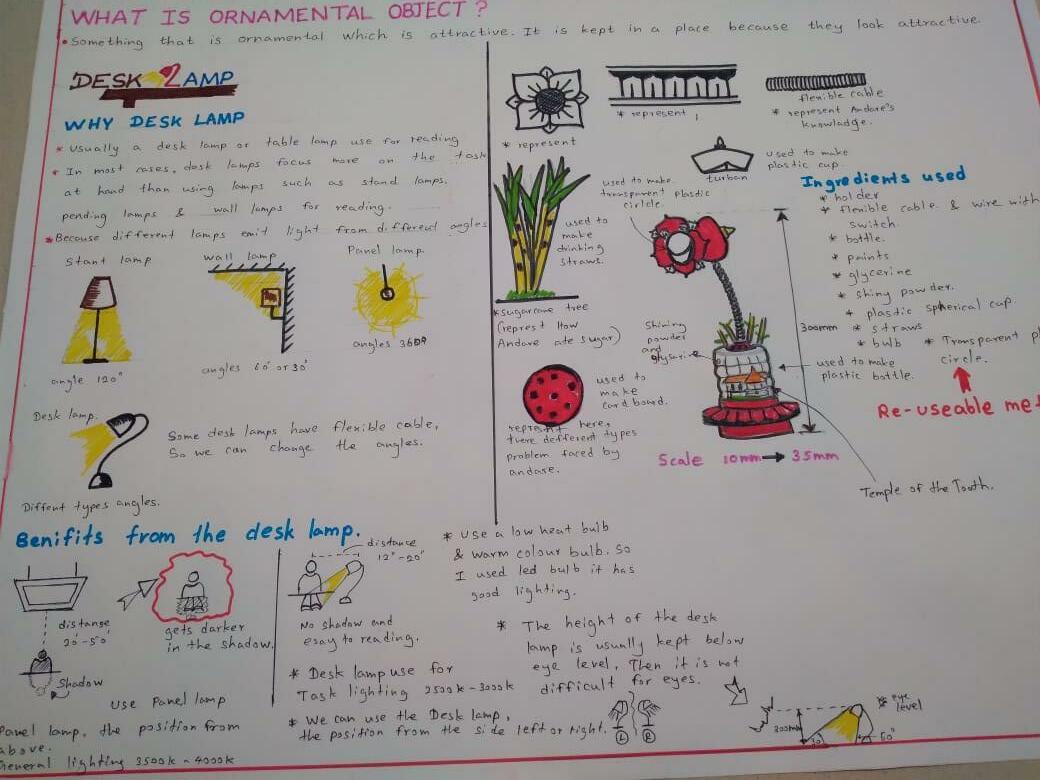 WHAT IS ORNAMENTAL OBJECT?
• Something that is ornamental which is attractive. It is kept in a place because they look attractive.
DESK LAMP
WHY DESK LAMP
* Usually a desk lamp or table lamp use for reading
* In most cases, desk lamps focus more on the task
at hand than using lamps such as stand lamps.
pending lamps & wall lamps for reading.
* Because different lamps emit light from different angles
Stant lamp
wall lamp
Panel lamp.
angle 120°
angles 60° or 30°
angles 360°
Desk lamp.
Some desk lamps have flexible cable,
So we can change the angles.
Diffent types angles.
* represent
* represent
flexible cable
* represent Andare's
knowladge.
turban
used to make
plastic cup.
used to make
transparent plastic
cirlcle.
used to
make
drinking
straws.
*sugarcane tree
(represt How
Andare ate sugar)
Shining
powder
and
glyserine
used to
make
card board.
represent here,
there defferent types
problem faced by
andase.
Ingredients used
* holder
* flexible cable & wire with
switch.
* bottle.
* paints
* glycerine
* shiny powder.
* plastic spherical cup.
* straws
* bulb
* Transparent pl
circle.
300mm
used to make
plastic bottle.
Re-useable met
Scale 10mm → 35mm
Temple of the Tooth.
Benifits from the desk lamp.
distange
20"-50"
Shadow
gets darker
in the shadow.
Use Panel lamp
Panel lamp, the position from
above.
General lighting 3500k - 4000k
distance
12"-20"
No shadow and
esay to reading.
* Desk lamp use for
Task lighting 2500k-3000k
* We can use the Desk lamp,
the position from the side left or right.
L
R
* Use a low heat bulb
& warm colour bulb. So
I used led bulb it has
good lighting.
* The height of the desk
lamp is usually kept below
eye level, Then it is not
difficult for eyes.
* eye
level
300mm
30°
60°